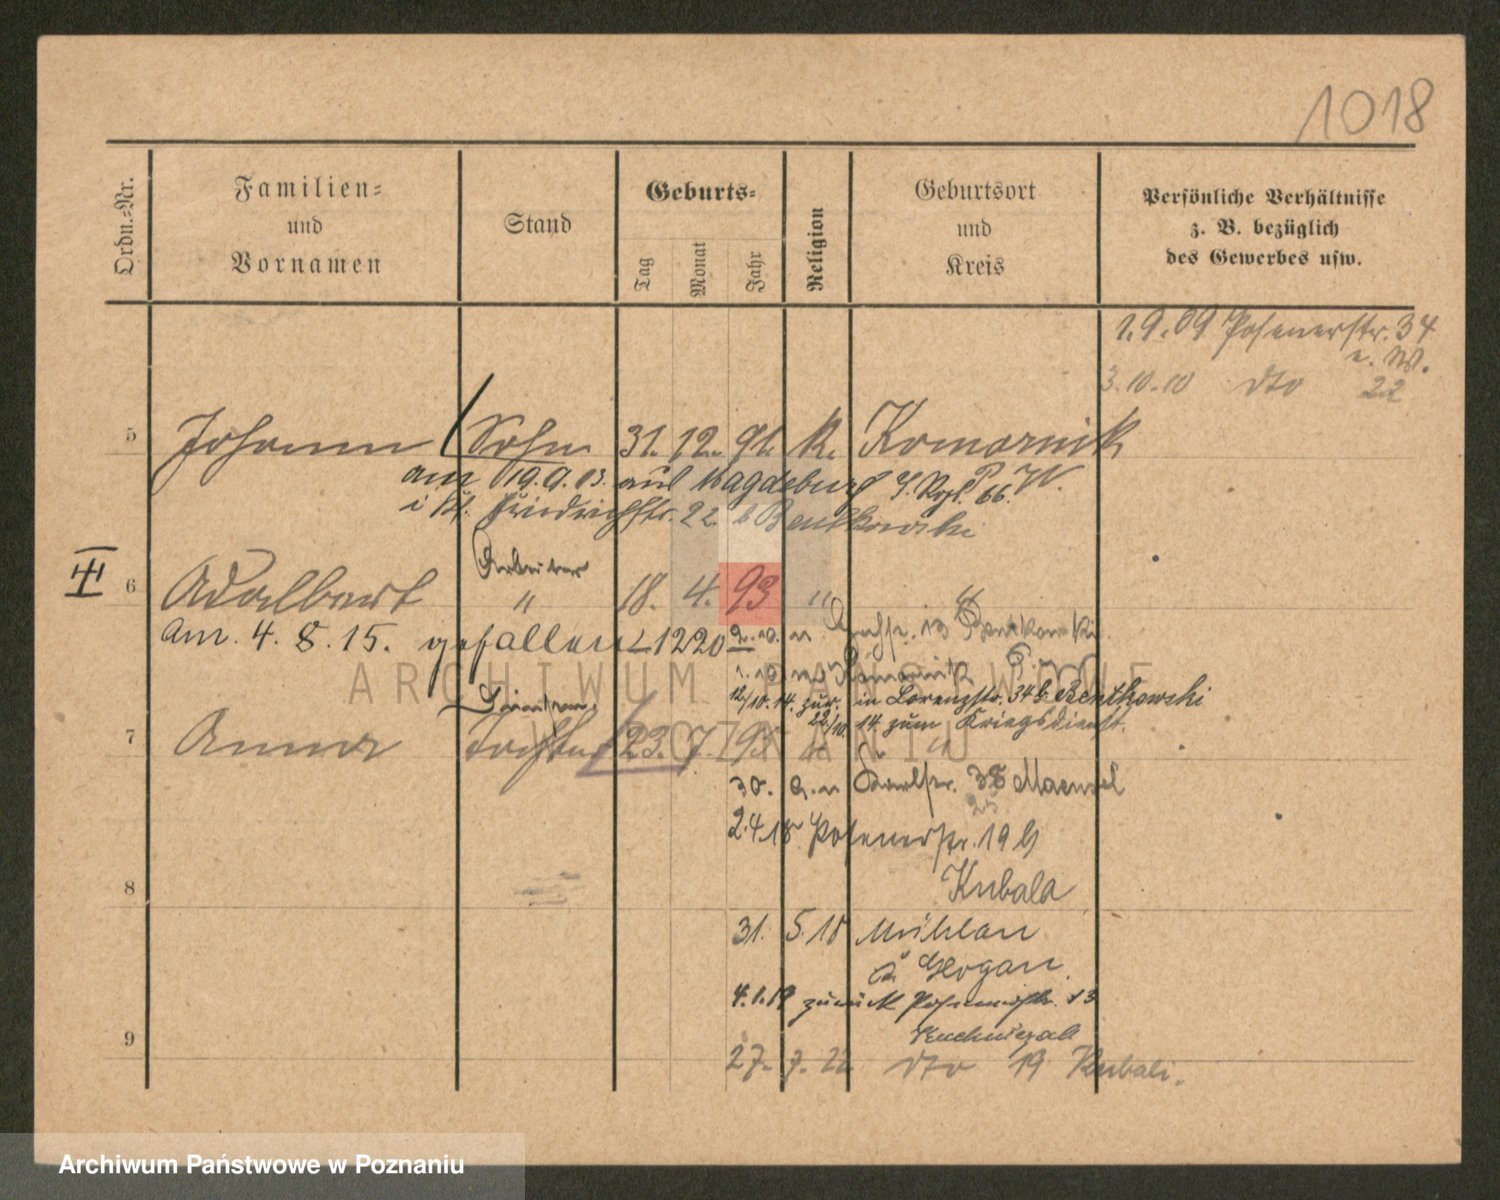 1018
Ordn.=Nr.
Familien=
und
Vornamen
Stand
Geburts=
Tag
Monat
Jahr
Religion
Geburtsort
und
Kreis
Persönliche Verhältnisse
z. B. bezüglich
des Gewerbes usw.
1.9.09 Posenerstr. 34
3.10.10 dto 22
5 Johann Sohn 31. 12. 91. K. Komornik
am 19.9.13. aus Magdeburg
Friedrichstr. 22 b Bentkowski
III
Arbeiter
6 Adalbert " 18. 4. 93 " "
Am. 4. 8. 15. gefallen 1220
Bentkowski
12/10.14. zur. in Lorenzstr. 34 b. Bentkowski
22/10 14. zum Kriegsdienst.
7 Anna Tochter 23. 7. 95 " "
30. Karlstr. 38 Maensel
25
2.4.18 Posenerstr. 19 b
Kubala
8
31. 5. 18 Mühlau
Glogau
4.1.19 zurück Posenerstr. 13
9
27. 7. 22 dto 19 Kubali.
ARCHIWUM PAŃSTWOWE
W POZNANIU
Archiwum Państwowe w Poznaniu